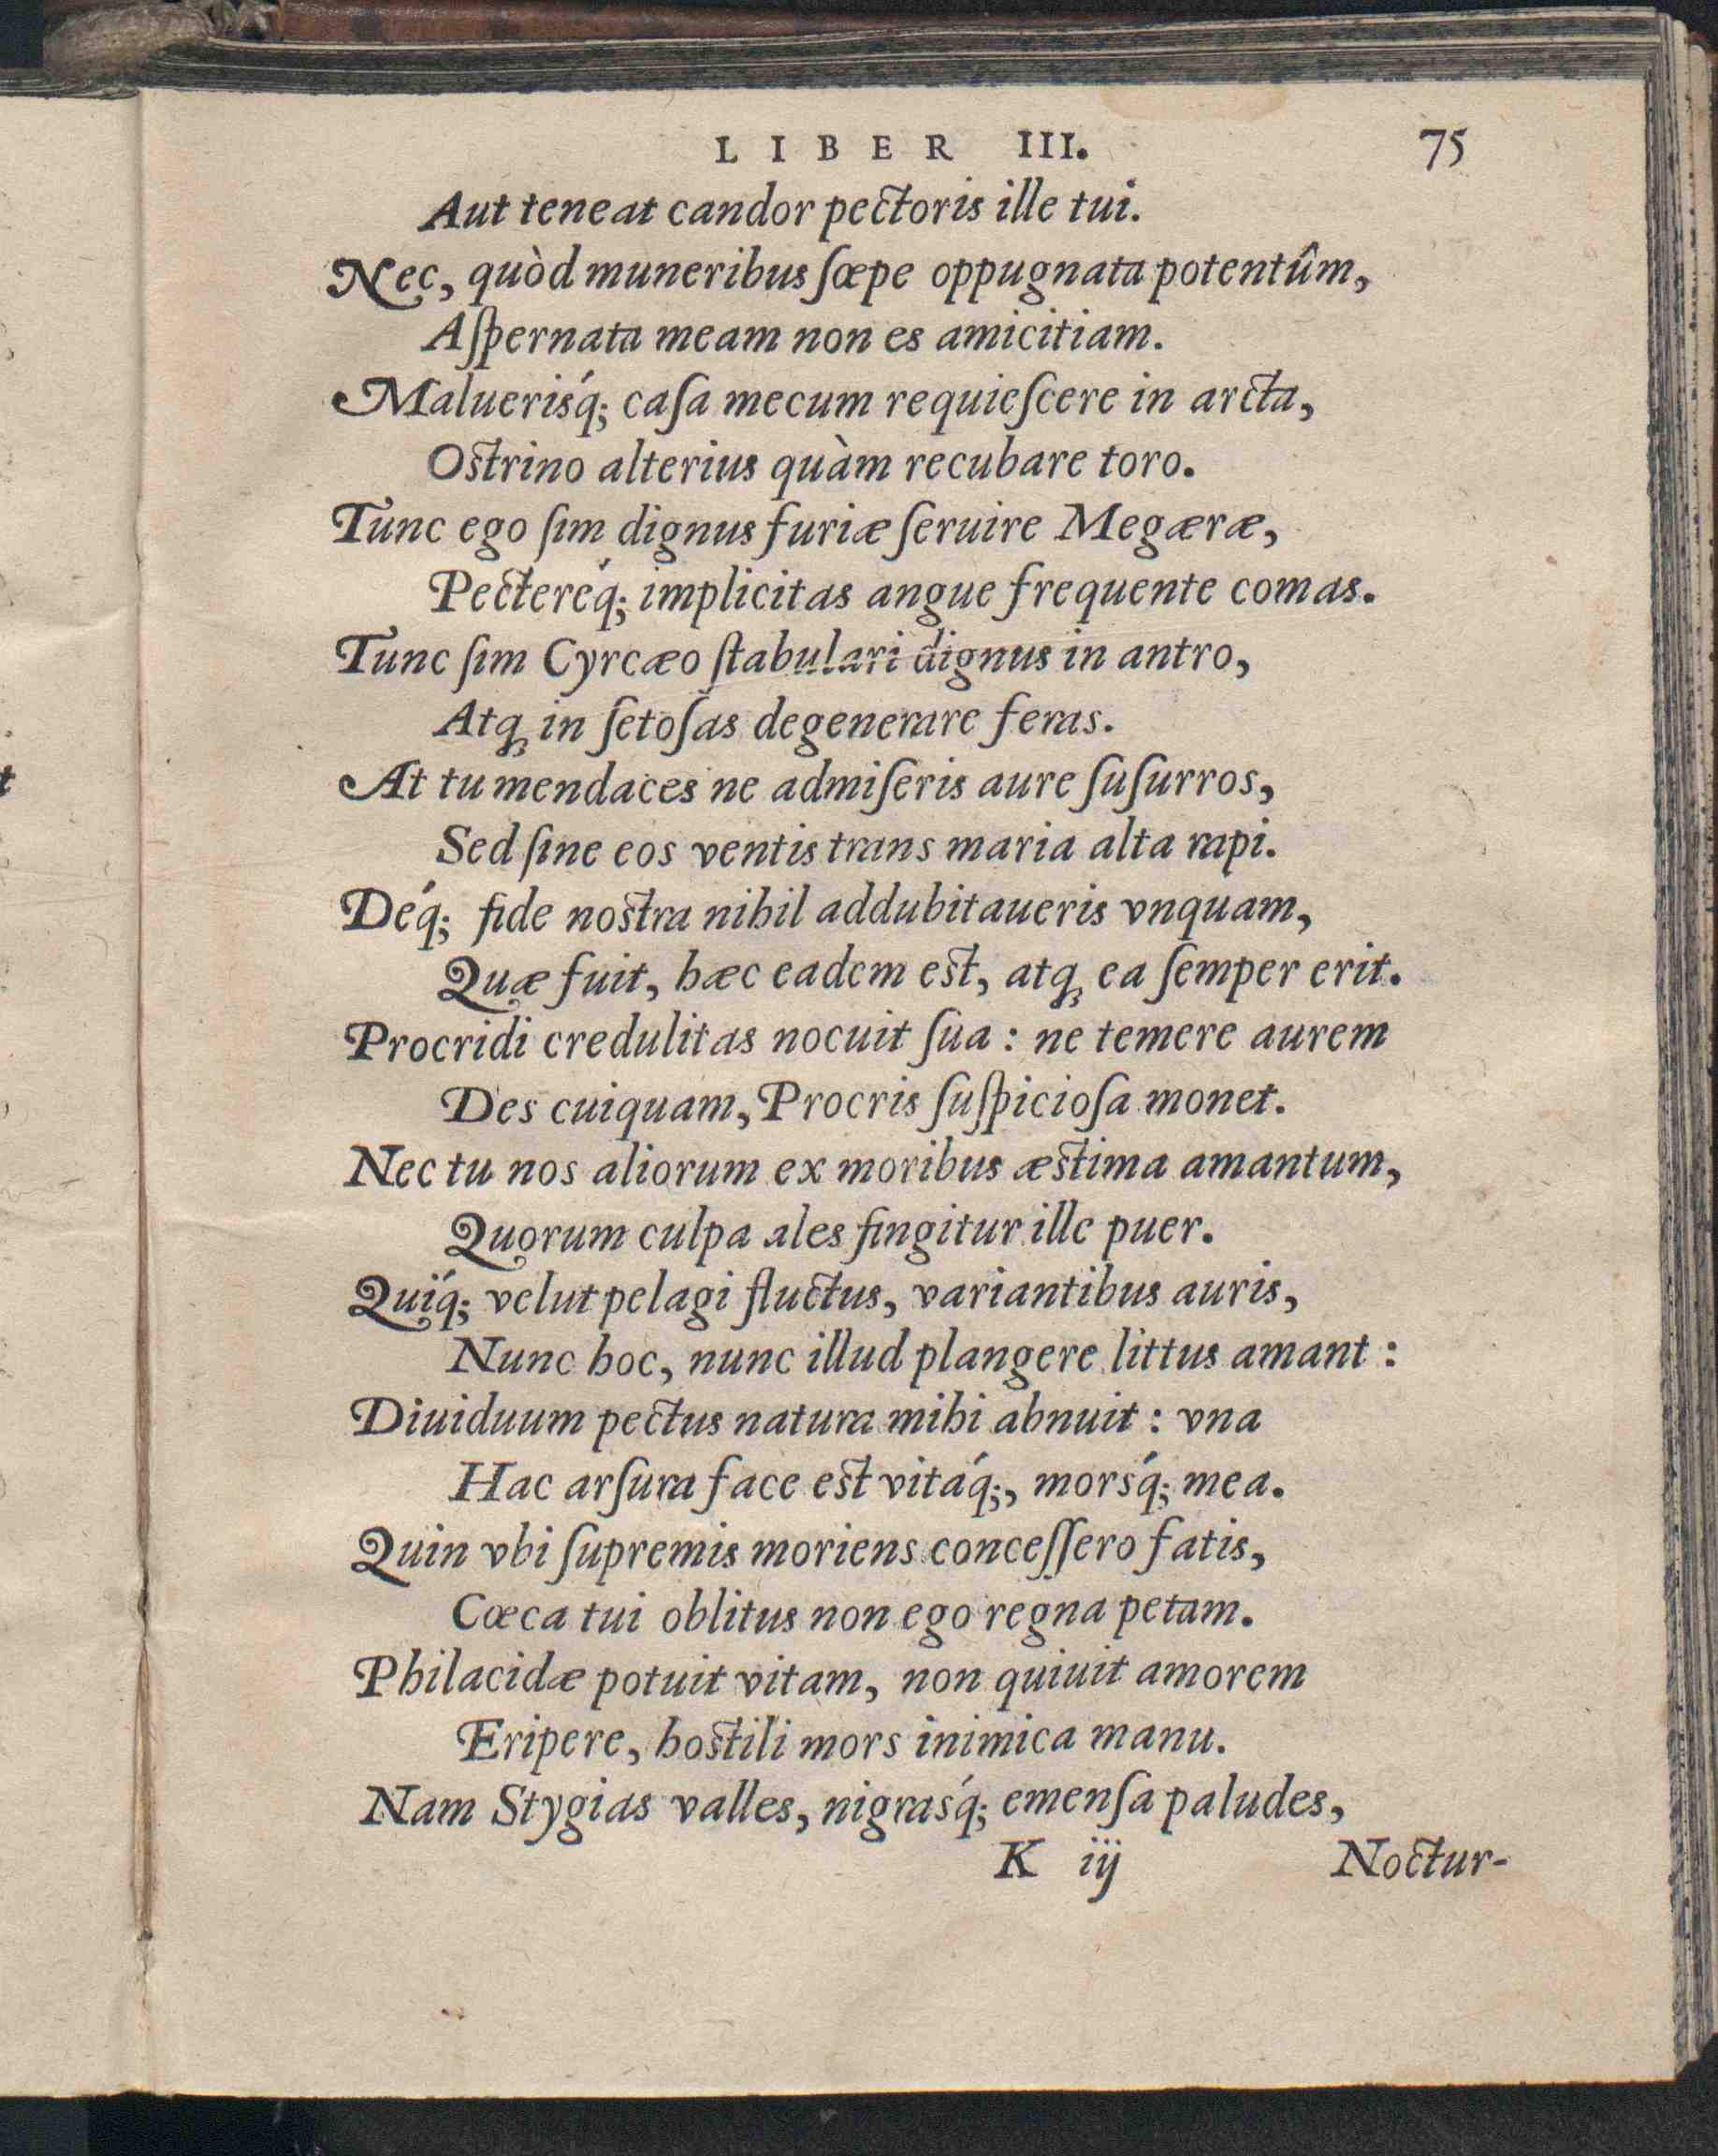 LIBER III. 75
Aut teneat candor pectoris ille tui.
Nec, quòd muneribus ſœpe oppugnata potentûm,
Aſpernata meam non es amicitiam.
Maluerisq́; caſa mecum requieſcere in arcta,
Ostrino alterius quàm recubare toro.
Tunc ego ſim dignus furiæ ſeruire Megæræ,
Pectereq́; implicitas angue frequente comas.
Tunc ſim Cyrcæo ſtabulari dignus in antro,
Atq; in ſetoſas degenerare feras.
At tu mendaces ne admiſeris aure ſuſurros,
Sed ſine eos ventis trans maria alta rapi.
Deq́; fide nostra nihil addubitaueris vnquam,
Quæ fuit, hæc eadem est, atq; ea ſemper erit.
Procridi credulitas nocuit ſua: ne temere aurem
Des cuiquam, Procris ſuſpicioſa monet.
Nec tu nos aliorum ex moribus æstima amantum,
Quorum culpa ales fingitur ille puer.
Quiq́; velut pelagi fluctus, variantibus auris,
Nunc hoc, nunc illud plangere littus amant:
Diuiduum pectus natura mihi abnuit: vna
Hac arſura face est vitaq́;, morsq́; mea.
Quin vbi ſupremis moriens conceſſero fatis,
Cœca tui oblitus non ego regna petam.
Philacidæ potuit vitam, non quiuit amorem
Eripere, hostili mors inimica manu.
Nam Stygias valles, nigrasq́; emenſa paludes,
K iij Noctur-